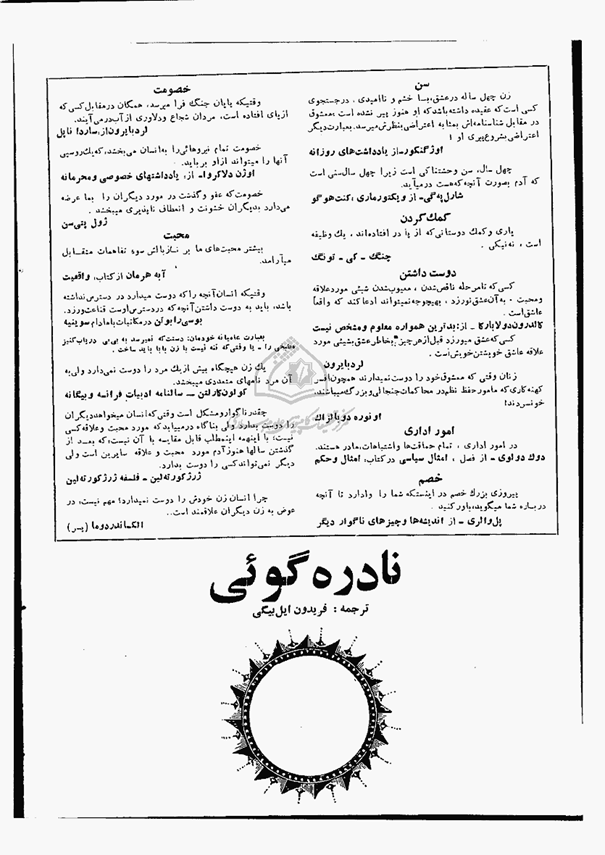 سن
زن چهل ساله درعشق، بسا خشم و ناامیدی، درجستجوی
کسی است که عقیده داشته باشد که او هنوز پیر نشده است. بمعشوق
در مقابل شناسنامه‌اش بمثابه اعتراضی بنظرش میرسد. بعبارت دیگر
اعتراضی بشروع پیری او !
اوژ گنکور - از یادداشت‌های روزانه
چهل سال، سن وحشتناکی است زیرا چهل سال سنی است
که آدم بصورت آنچه که هست درمیآید.
شارل پگی - از ویکتورماری، کنت هوگو
کمک کردن
یاری و کمک دوستانی که از پا در افتاده‌اند ، یک وظیفه
است ، نه نیکی .
چنگ - کی - تونگ
دوست داشتن
کسی که تامرحله ناقص شدن ، معیوب شدن شیئی مورد علاقه
ومحبت ، به آن عشق نورزد ، بهیچوجه نمیتواند ادعا کند که واقعاً
عاشق است .
کالدرون دولابارکا - از: بدترین همواره معلوم ومشخص نیست
کسی که عشق میورزد قبل از هر چیز بخاطر عشق بشیئی مورد
علاقه عاشق خویشتن خویش است .
لرد بایرون
زنان وقتی که معشوق خود را دوست نمیدارند همچون افسر
کهنه کاری که مامور حفظ نظم در محاکمات جنجالی و بزرگ میباشند،
خونسردند!
اونوره دو بالزاک
امور اداری
در امور اداری ، تمام حماقت‌ها واشتباهات، مادر هستند.
دوک دولوی - از فصل ، امثال سیاسی در کتاب، امثال وحکم
خصم
پیروزی بزرگ خصم در اینستکه شما را وادارد تا آنچه
درباره شما میگوید، باور کنید .
پل والری - از اندیشه‌ها وچیزهای ناگوار دیگر
خصومت
وقتیکه پایان جنگ فرا میرسد، همگان درمقابل کسی که
ازپای افتاده است، مردان شجاع ودلاوری از آب درمی‌آیند.
لرد بایرون از، ساردا ناپل
خصومت تمام نیروهائی را به انسان می‌بخشد، که یک روسپی
آنها را میتواند از او برباید.
اوژن دلاکروا - از، یادداشتهای خصوصی ومحرمانه
خصومت که عفو وگذشت در مورد دیگران را بما عرضه
می‌دارد بدیگران خشونت و انعطاف ناپذیری میبخشد .
ژول پتی سن
محبت
بیشتر محبت‌های ما بر سوء تفاهمات متقابل
میآرامد.
آبه هرمان از کتاب، واقعیت
وقتیکه انسان آنچه را که دوست میدارد در دسترس نداشته
باشد، باید به دوست داشتن آنچه که دردسترس اوست قناعت ورزد.
بوسی رابوتن درمکاتبات بامادام سوینیه
بعبارت عامیانه خودمان: دستت که نمیرسد به بی بی دریاب کنیز
مطبخی را - یا وقتی که ننه نیست با زن بابا باید ساخت .
یک زن هیچگاه بیش از یک مرد را دوست نمی‌دارد ولی به
آن مرد نامهای متعددی میبخشد.
اولون کارلتن - سالنامه ادبیات فرانسه و بیگانه
چقدر ناگوار ومشکل است وقتی که انسان میخواهد دیگران
را دوست بدارد ولی بناگاه درمییابد که مورد محبت وعلاقه کسی
نیست، با اینهمه اینمطلب قابل مقایسه با آن نیست، که بعد از
گذشتن سالها هنوز آدم مورد محبت و علاقه سایرین است ولی
دیگر نمی‌تواند کسی را دوست بدارد.
ژرژ کورته لین - فلسفه ژرژ کورته لین
چرا انسان زن خودش را دوست نمیدارد؟ مهم نیست، در
عوض به زن دیگران علاقمند است..
الکساندر دوما (پسر)
نادره گوئی
ترجمه : فریدون ایل بیگی